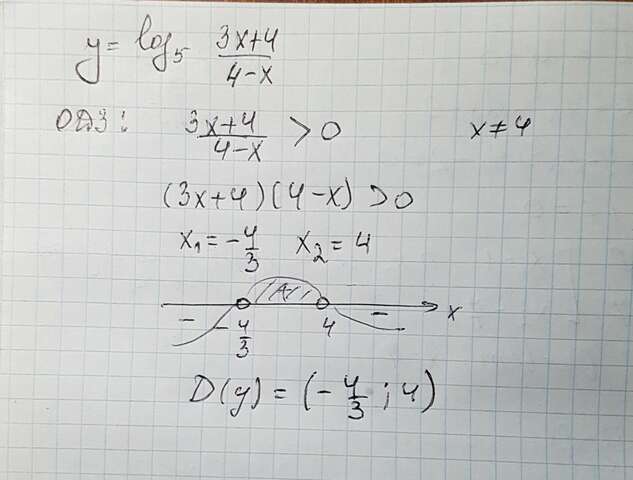 y = log₅ (3x+4)/(4-x)
ОДЗ: (3x+4)/(4-x) > 0 x ≠ 4
(3x+4)(4-x) > 0
x₁ = -4/3 x₂ = 4
- + - x
-4/3 4
D(y) = (-4/3; 4)